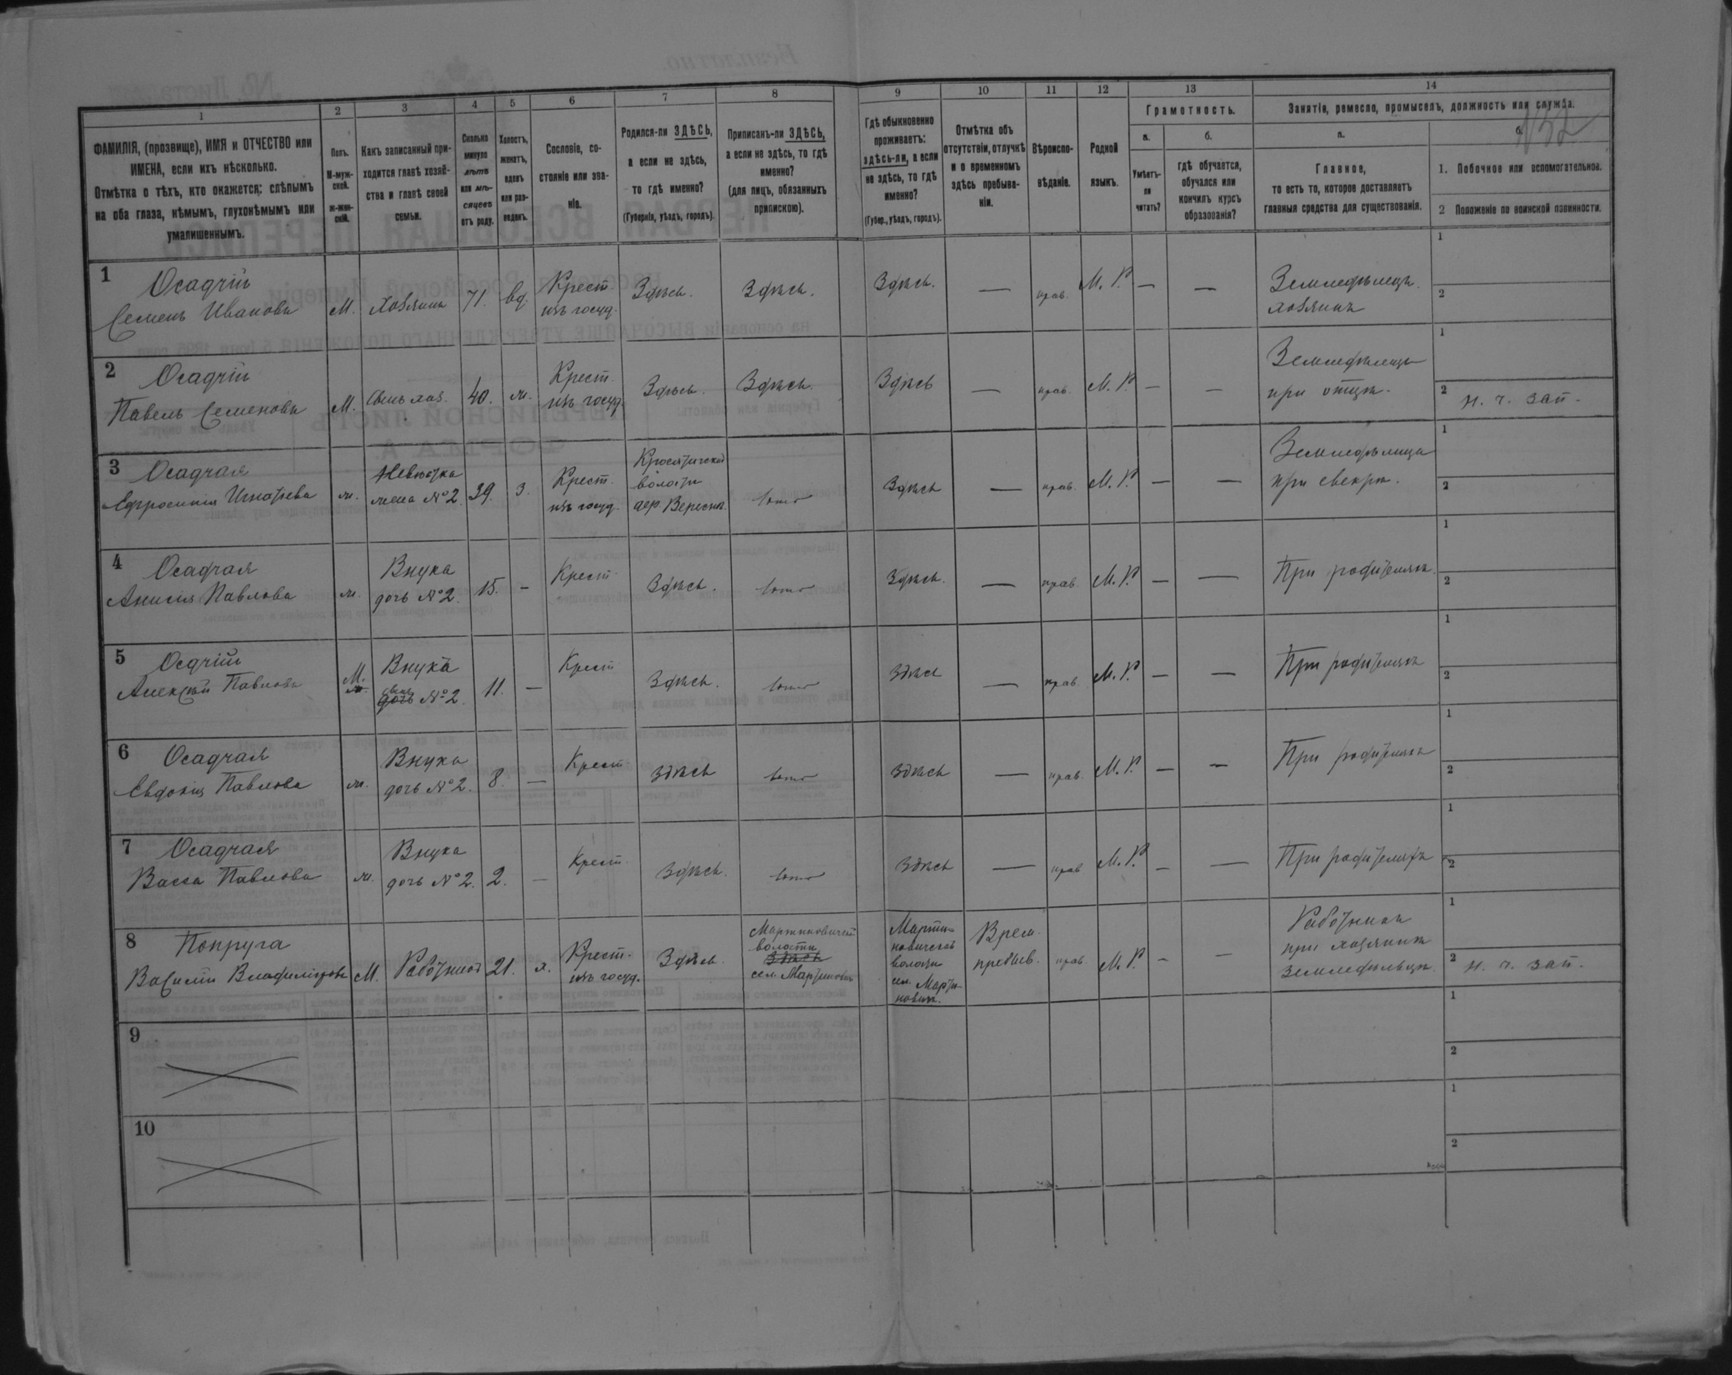 1 2 3 4 5 6 7 8 9 10 11 12 13 14
ФАМИЛІЯ, (прозвище), ИМЯ и ОТЧЕСТВО или ИМЕНА, если ихъ нѣсколько.
Отмѣтка о тѣхъ, кто окажется: слѣпымъ на оба глаза, нѣмымъ, глухонѣмымъ или умалишеннымъ.
Полъ.
М-муж-
ской.
ж-жен-
скій.
Какъ записанный при-
ходится главѣ хозяй-
ства и главѣ своей
семьи.
Сколько
минуло
лѣтъ
или мѣ-
сяцевъ
отъ роду.
Холостъ,
женатъ,
вдовъ
или раз-
веденъ.
Сословіе, со-
стояніе или зва-
ніе.
Родился-ли ЗДѢСЬ,
а если не здѣсь,
то гдѣ именно?
(Губернія, уѣздъ, городъ).
Приписанъ-ли ЗДѢСЬ,
а если не здѣсь, то гдѣ
именно?
(для лицъ, обязанныхъ
припискою).
Гдѣ обыкновенно
проживаетъ:
здѣсь-ли, а если
не здѣсь, то гдѣ
именно?
(Губер., уѣздъ, городъ).
Отмѣтка объ
отсутствіи, отлучкѣ
и о временномъ
здѣсь пребыва-
ніи.
Вѣроиспо-
вѣданіе.
Родной
языкъ.
Грамотность.
а.
Умѣетъ-
ли
читать?
б.
гдѣ обучается,
обучался или
кончилъ курсъ
образованія?
Занятія, ремесло, промыселъ, должность или служба.
132
а.
Главное,
то есть то, которое доставляетъ
главныя средства для существованія.
б.
1. Побочное или вспомогательное.
2 Положеніе по воинской повинности.
1 Осадчій
Семенъ Ивановъ М. хозяинъ 71. вд. Крест. изъ госуд. Здѣсь. Здѣсь. Здѣсь. — прав. М. Р. — — Земледѣлецъ. хозяинъ 1 2
2 Осадчій
Павелъ Семеновъ М. Сынъ хоз. 40. ж. Крест. изъ госуд. Здѣсь. Здѣсь. Здѣсь — прав. М. Р. — — Земледѣлецъ при отцѣ. 1 2 н. ч. зап.
3 Осадчая
Ефросинія Игнатьева ж. Невѣстка жена №2 39. з. Крест. изъ госуд. волости дер. Вересня. тоже Здѣсь — прав. М. Р. — — Земледѣлица при свекрѣ. 1 2
4 Осадчая
Анисія Павлова ж. Внука дочь №2. 15. — Крест. Здѣсь. тоже Здѣсь. — прав. М. Р. — — При родителяхъ. 1 2
5 Осдчій
Алексѣй Павловъ М. ж. Внука сынъ дочь №2 11. — Крест Здѣсь. тоже Здѣсь — прав. М. Р. — — При родителяхъ 1 2
6 Осадчая
Евдокія Павлова ж. Внука дочь №2. 8. — Крест Здѣсь тоже Здѣсь — прав. М. Р. — — При родителяхъ 1 2
7 Осадчая
Васса Павлова ж. Внука дочь №2. 2. — Крест. Здѣсь. тоже Здѣсь — прав М. Р. — — При родителяхъ 1 2
8 Попруга
Василій Владиміровъ М. Работникъ 21. х. Крест. изъ госуд. Здѣсь. Мартиновичской волости Здѣсь сел. Мартиновичъ Мартиновичской волости сел. Мартиновичъ. Врем. пребыв. прав. М. Р. — — Работникъ при хозяинѣ земледѣльцѣ. 1 2 н. ч. зап.
9 1 2
10 1 2